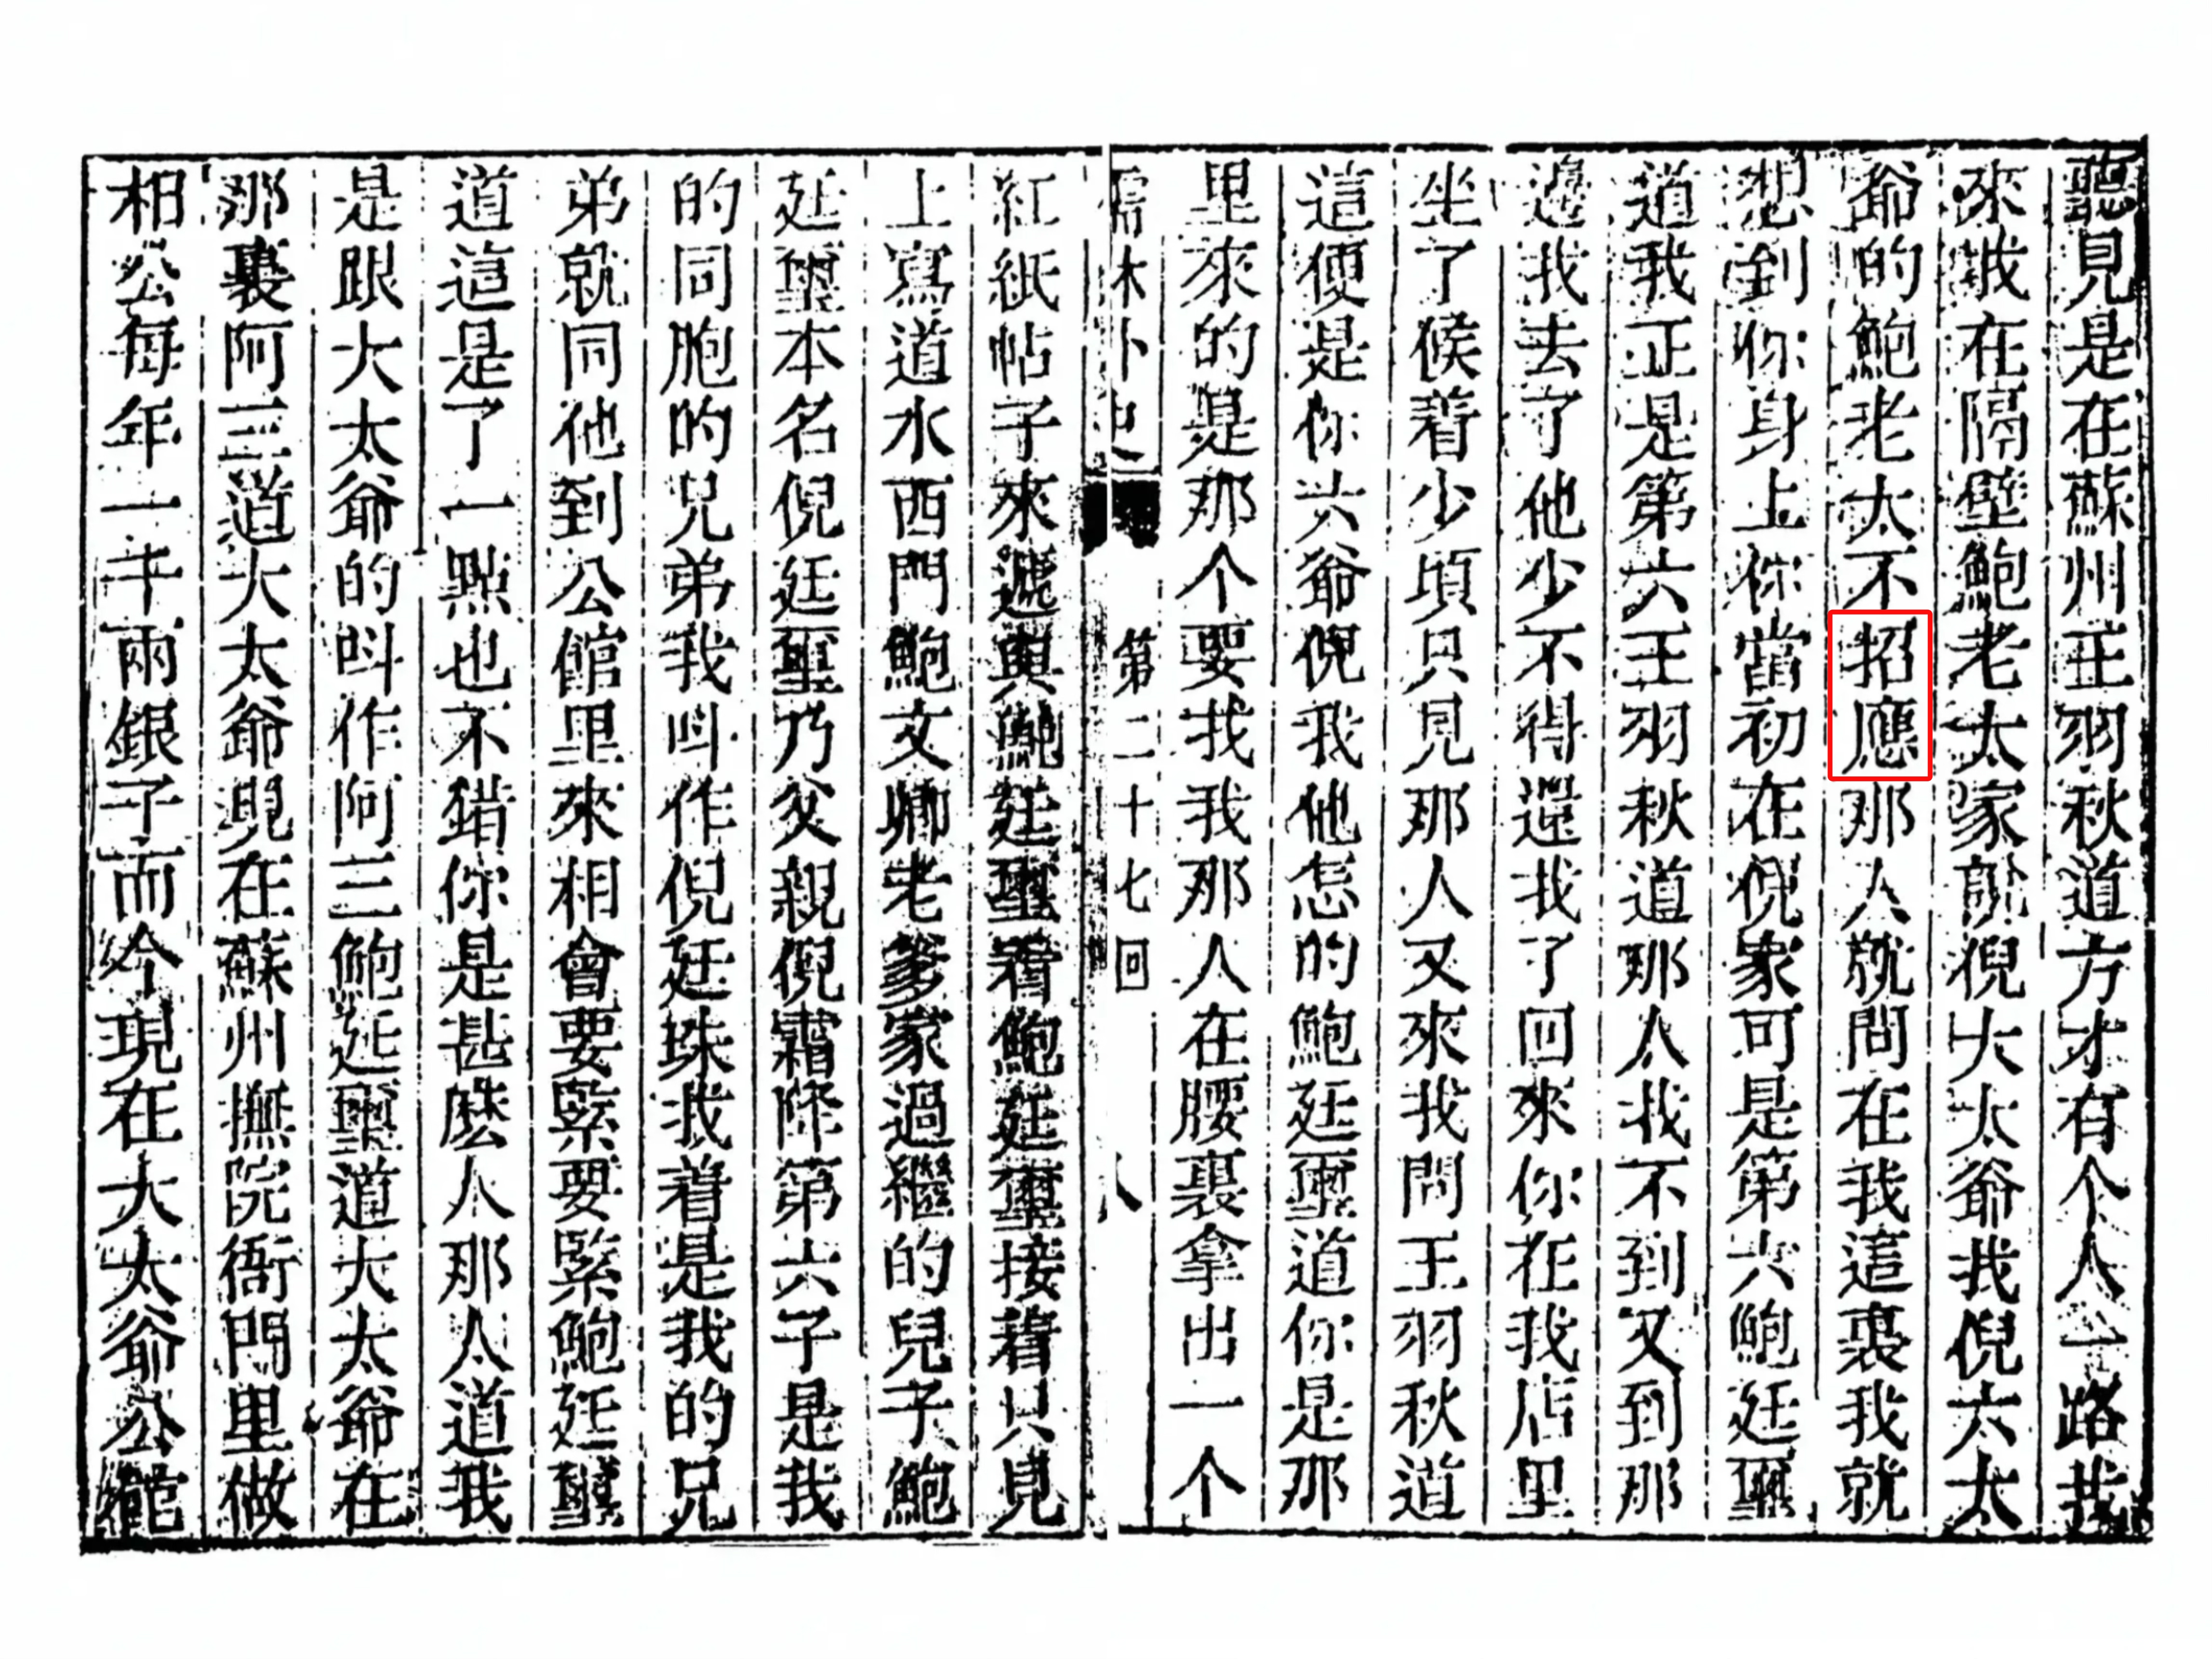 聽見是在蘇州王羽秋道方才有个人一路找
來找在隔壁鮑老太家說倪大太爺找倪六太
爺的鮑老太不招應那人就問在我這裏我就
想到你身上你當初在倪家可是第六鮑廷璽
道我正是第六王羽秋道那人找不到又到那
邊找去了他少不得還找了回來你在我店里
坐了候着少頃只見那人又來找問王羽秋道
這便是你六爺倪找他怎的鮑廷璽道你是那
里來的是那个要找我那人在腰裏拿出一个
儒林外史 第二十七回 八
紅紙帖子來遞與鮑廷璽看鮑廷璽接着只見
上寫道水西門鮑文卿老爹家過繼的兒子鮑
廷璽本名倪廷璽乃父親倪霜降第六子是我
的同胞的兄弟我叫作倪廷珠找着是我的兄
弟就同他到公館里來相會要緊要緊鮑廷璽
道這是了一點也不錯你是甚麽人那人道我
是跟大太爺的叫作阿三鮑廷璽道大太爺在
那裏阿三道大太爺現在蘇州撫院衙門里做
相公每年一千兩銀子而今現在大太爺公館